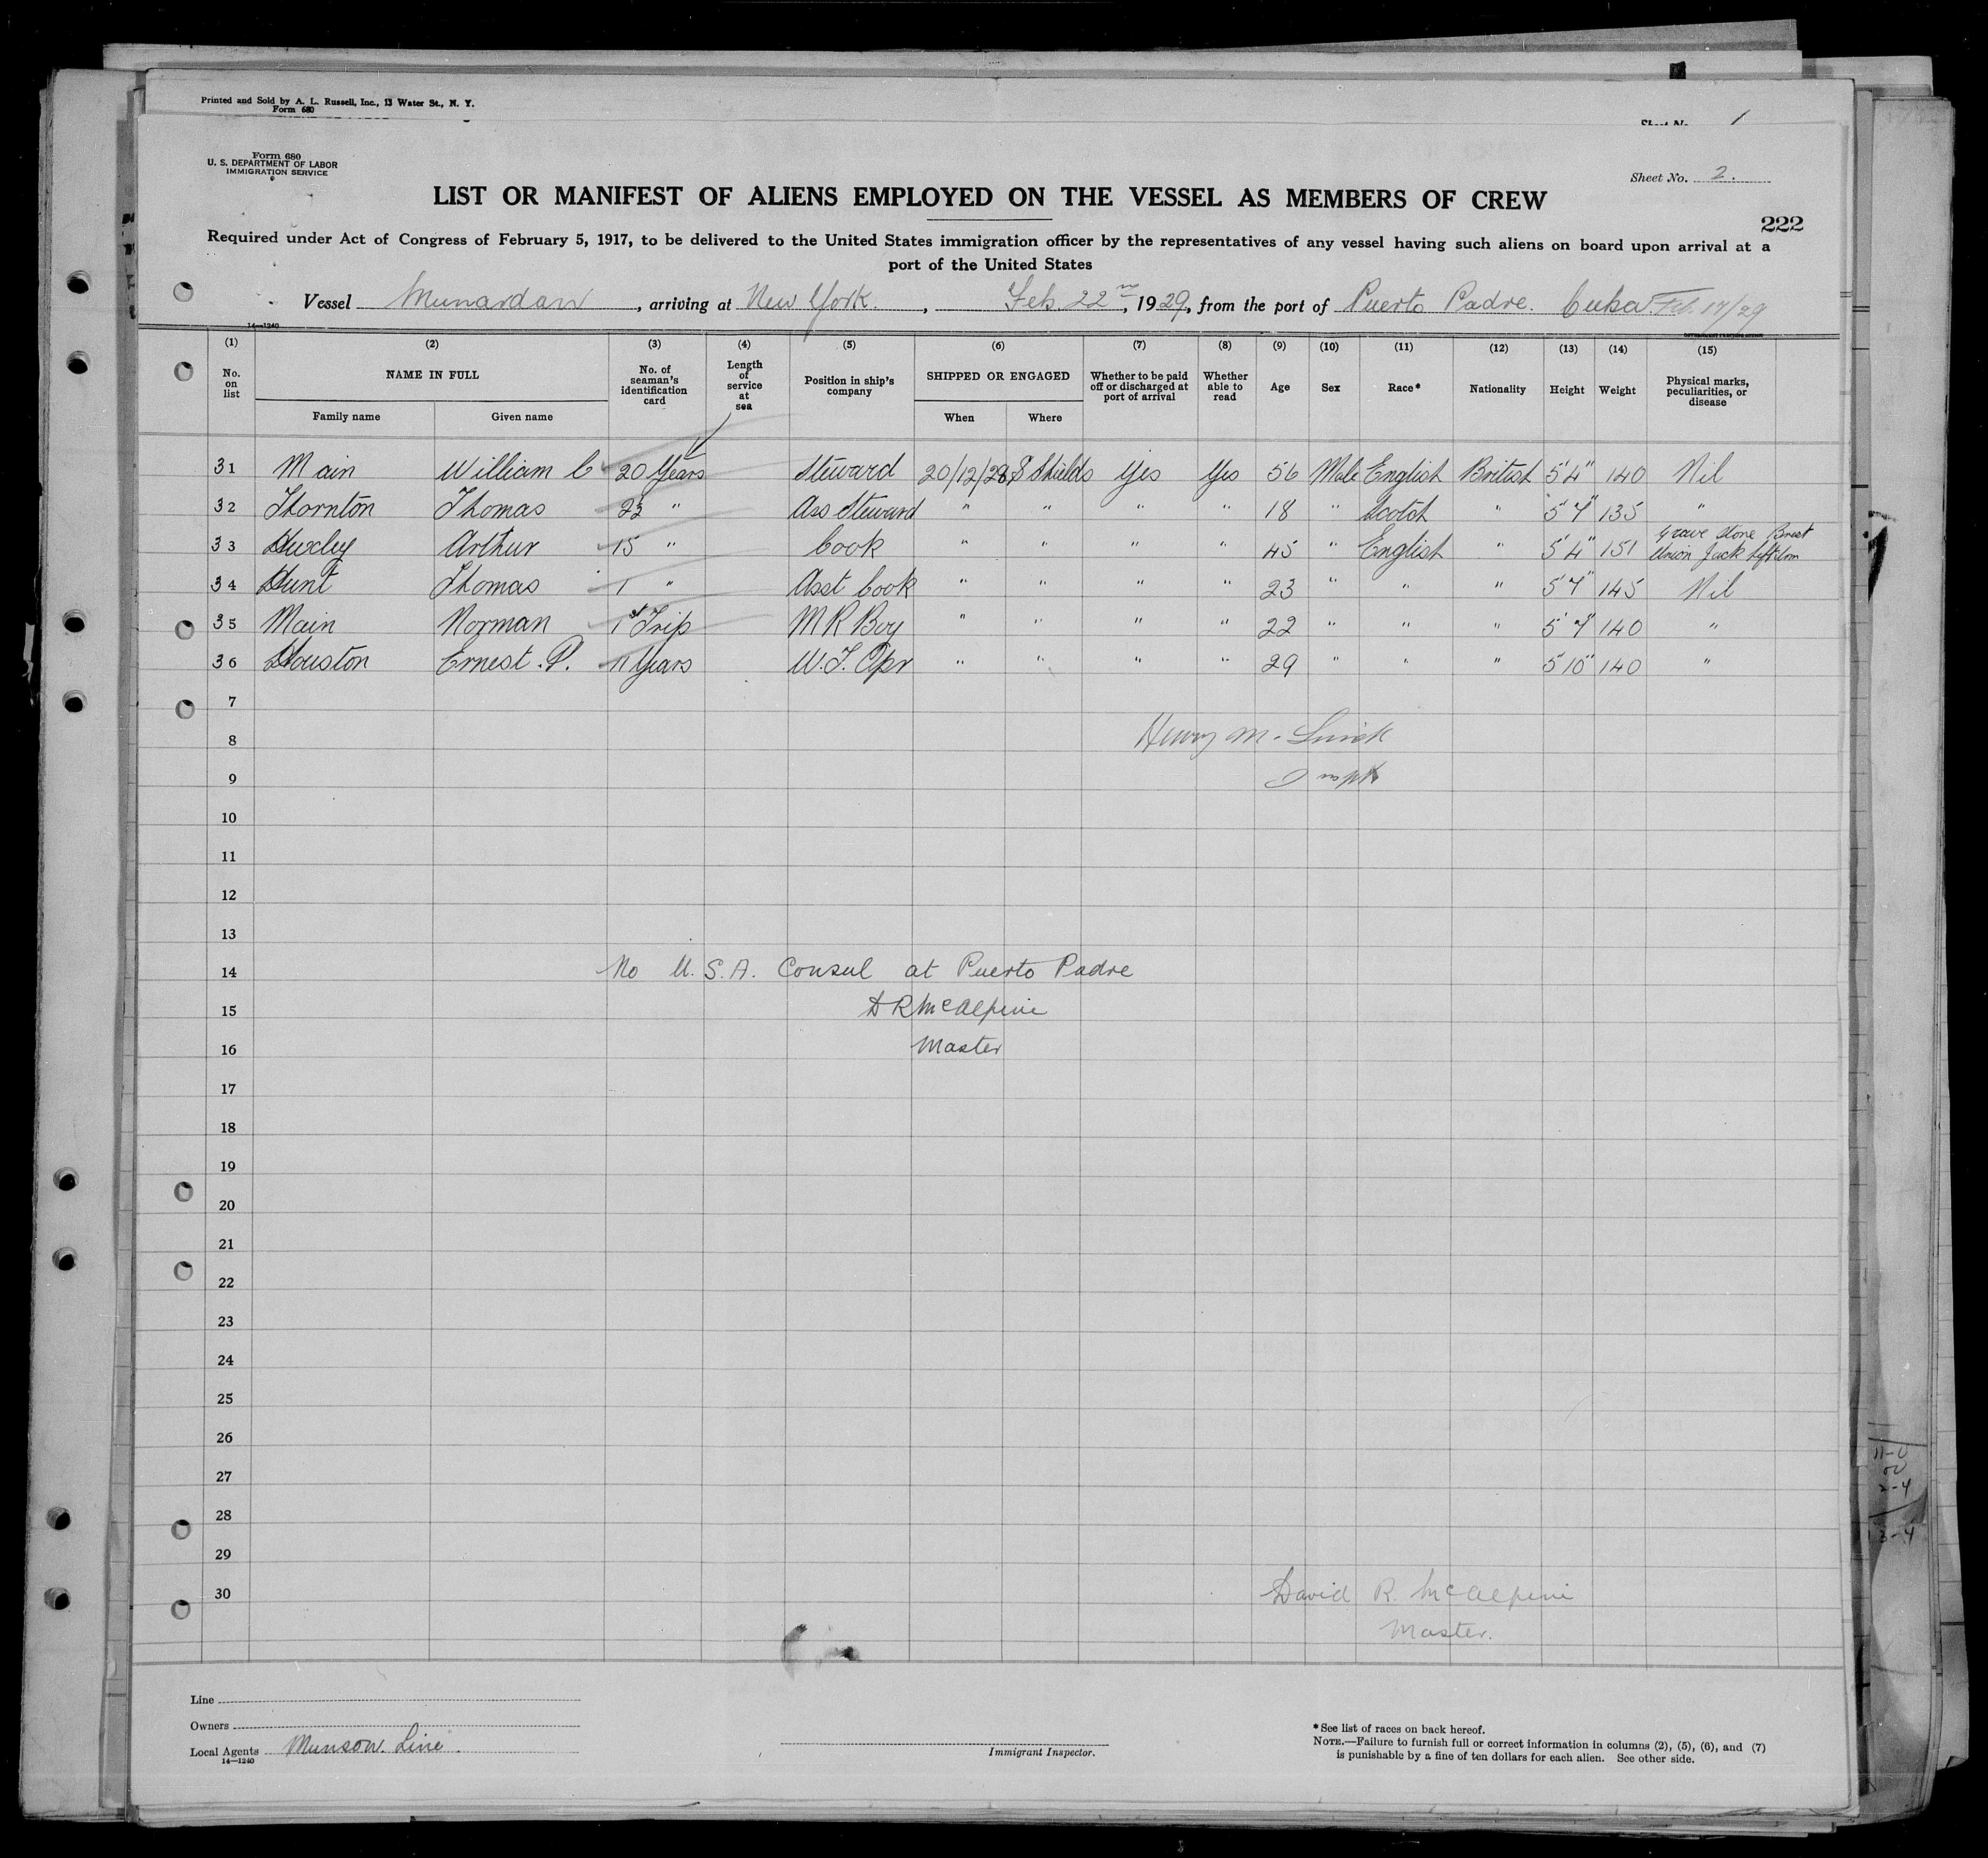 Printed and Sold by A. L. Russell, Inc., 13 Water St., N. Y.
Form 680
1
Form 680
U. S. DEPARTMENT OF LABOR
IMMIGRATION SERVICE
Sheet No. 2.
LIST OR MANIFEST OF ALIENS EMPLOYED ON THE VESSEL AS MEMBERS OF CREW
222
Required under Act of Congress of February 5, 1917, to be delivered to the United States immigration officer by the representatives of any vessel having such aliens on board upon arrival at a
port of the United States
Vessel Munardan, arriving at New York., Feb. 22nd, 1929, from the port of Puerto Padre. Cuba. Feb. 17/29
14—1240
(1) (2) (3) (4) (5) (6) (7) (8) (9) (10) (11) (12) (13) (14) (15)
No. on list NAME IN FULL Family name Given name No. of seaman's identification card Length of service at sea Position in ship's company SHIPPED OR ENGAGED When Where Whether to be paid off or discharged at port of arrival Whether able to read Age Sex Race* Nationality Height Weight Physical marks, peculiarities, or disease
31 Main William C 20 Years Steward 20/12/28 S Shields Yes Yes 56 Male English British 5'4" 140 Nil
32 Thornton Thomas " Ass Steward " " " " 18 " Scotch " 5'7" 135 "
33 Huxley Arthur 15 " Cook " " " " 45 " English " 5'4" 151 Grave Stone Brest
Union Jack
34 Hunt Thomas 1 " Asst Cook " " " " 23 " " " 5'7" 145 Nil
35 Main Norman 1st Trip M R Boy " " " " 22 " " " 5'7" 140 "
36 Houston Ernest .P. 11 Years W.T. Opr " " " " 29 " " " 5'10" 140 "
7
Henry M.
8
Inspt
9
10
11
12
13
14 No U.S.A. Consul at Puerto Padre
15 D R McAlpine
16 Master
17
18
19
20
21
22
23
24
25
26
27
28
29
30 David R. McAlpine
Master.
Line
Owners
Local Agents Munson Line.
14—1240
Immigrant Inspector.
*See list of races on back hereof.
NOTE.—Failure to furnish full or correct information in columns (2), (5), (6), and (7)
is punishable by a fine of ten dollars for each alien. See other side.
11-0
2-4
3-4